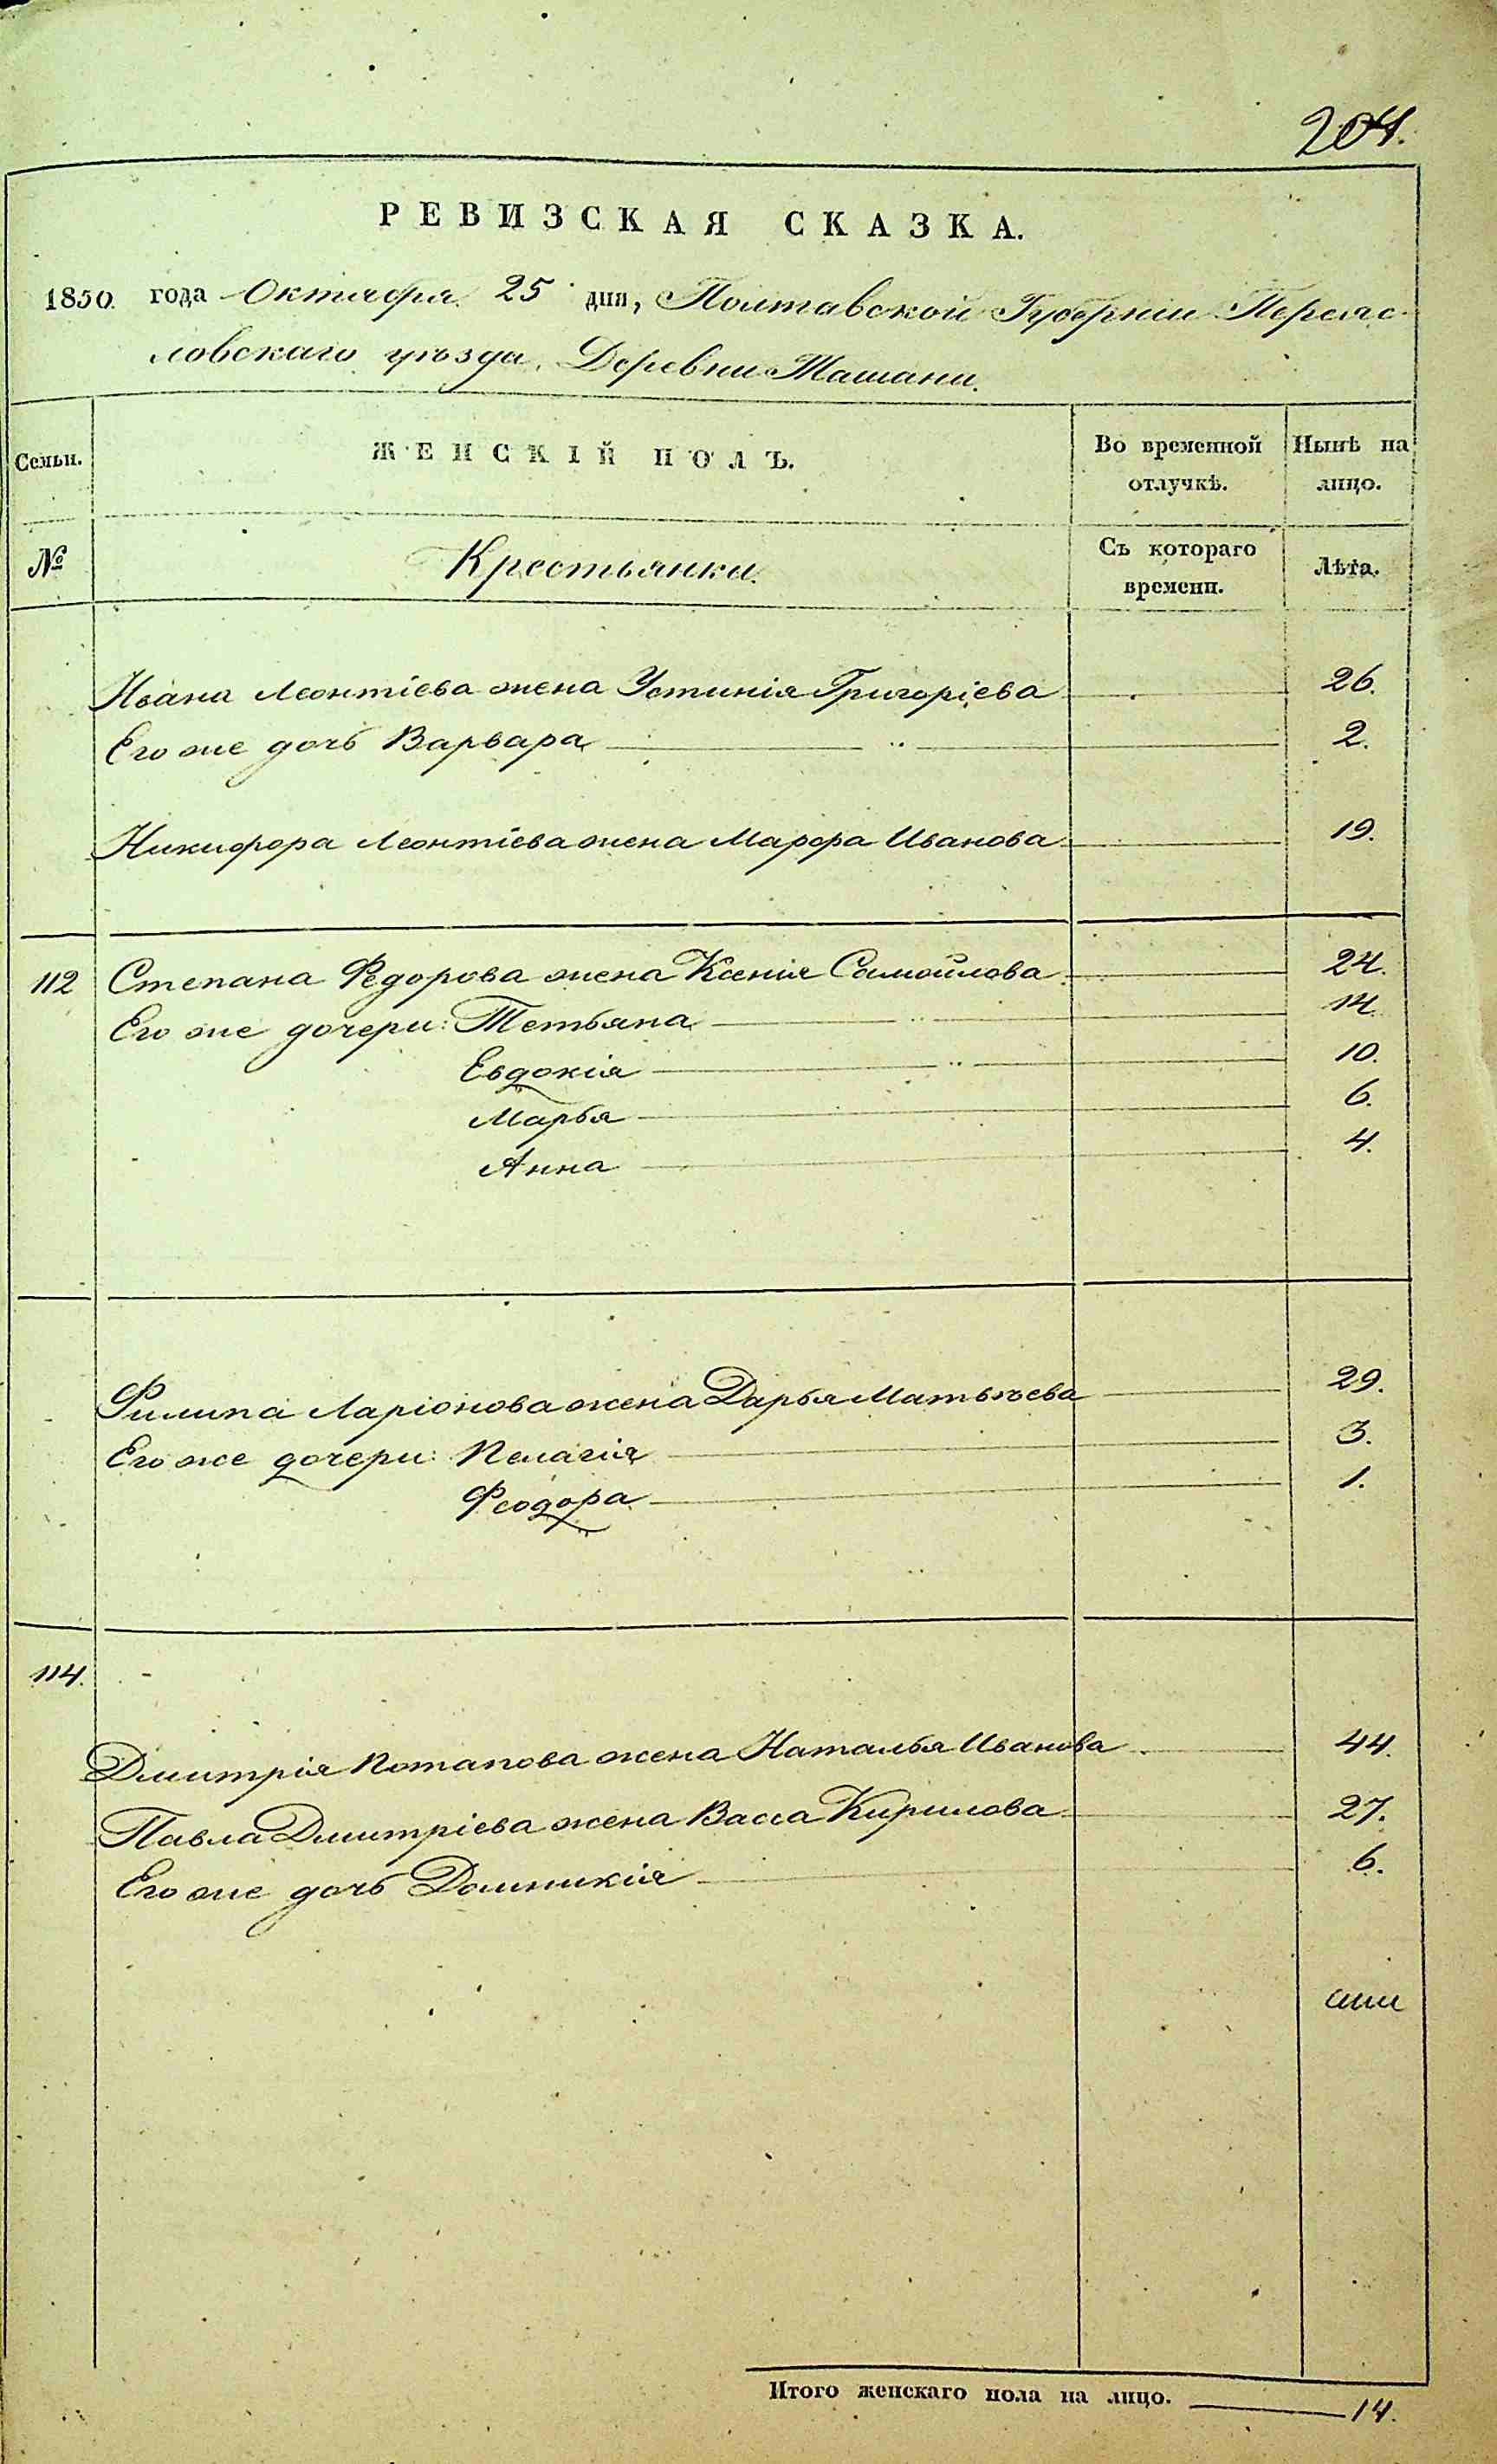 204.
РЕВИЗСКАЯ СКАЗКА.
1850 года Октября 25 дня, Полтавской Губерніи Переяс-
ловскаго уѣзда, Деревни Ташани.
Семьи.
ЖЕНСКІЙ ПОЛЪ.
Во временной отлучкѣ.
Нынѣ на лицо.
№
Крестьянки.
Съ котораго времени.
Лѣта.
Ивана Леонтіева жена Устинія Григоріева 26.
Его же дочь Варвара 2.
Никифора Леонтіева жена Марфа Иванова 19.
112 Степана Федорова жена Ксенія Самойлова 24.
Его же дочери: Тетьяна 14.
Евдокія 10.
Марья 6.
Анна 4.
Филипа Ларіонова жена Дарья Матвѣева 29.
Его же дочери: Пелагія 3.
Феодора 1.
114.
Дмитрія Потапова жена Наталья Иванова 44.
Павла Дмитріева жена Васса Кирилова 27.
Его же дочь Домникія 6.
Итого женскаго пола на лицо. 14.